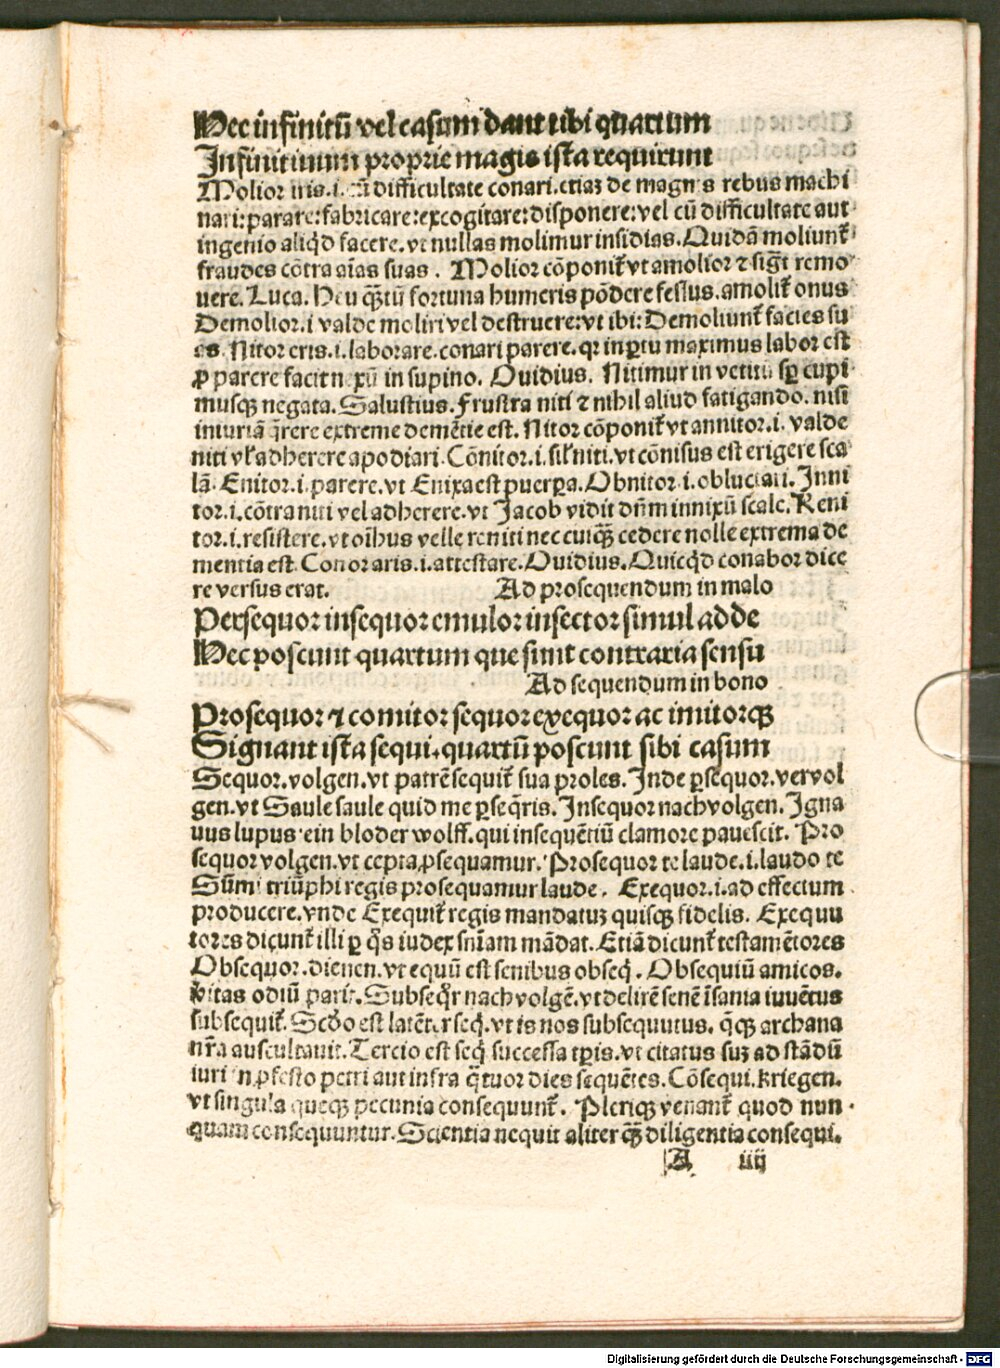 Hec infinitū vel casum dant tibi quartum
Infinitiuum proprie magis ista requirunt
Molior iris.i.cū difficultate conari.etiaz de magnis rebus machi
nari:parare:fabricare:excogitare:disponere:vel cū difficultate aut
ingenio aliqd̄ facere.vt nullas molimur insidias.Quidā moliunt᷑
fraudes cōtra aīas suas. Molior cōponit᷑ vt amolior ⁊ sigt̄ remo
uere.Luca.Heu qꝫ̄tū fortuna humeris pōdere fessus.amolit᷑ onus
Demolior.i valde moliri vel destruere:vt ibi:Demoliunt᷑ facies su
as.Nitor eris.i.laborare.conari parere.qꝛ in ꝑtu maximus labor est
ꝓ parere facit nixū in supino. Ouidius. Nitimur in vetitū sꝑ cupi
musqꝫ negata.Salustius.Frustra niti ⁊ nihil aliud fatigando.nisi
iniuriā q̄rere extreme demētie est. Nitor cōponit᷑ vt annitor.i.valde
niti vł adherere apodiari.Cōnitor.i.silł niti.vt cōnisus est erigere sca
lā.Enitor.i.parere.vt Enixa est puerꝑa.Obnitor.i.obluctari.Inni
tor.i.cōtra niti vel adherere.vt Jacob vidit dn̄m innixū scale.Reni
tor.i.resistere.vt oīhus velle reniti nec cuiqꝫ̄ cedere nolle extrema de
mentia est.Conor aris.i.attestare.Ouidius.Quicqd̄ conabor dice
re versus erat. Ad prosequendum in malo
Persequor insequor emulor insector simul adde
Hec poscunt quartum que sunt contraria sensu
Ad sequendum in bono
Prosequor ⁊ comitor sequor exequor ac imitorqꝫ
Signant ista sequi.quartū poscunt sibi casum
Sequor.volgen.vt patrē sequit᷑ sua proles.Inde ꝑsequor.vervol
gen.vt Saule saule quid me ꝑseq̄ris.Insequor nachvolgen.Igna
uus lupus ein bloder wolff.qui insequētiū clamore pauescit. Pro
sequor volgen.vt cepta ꝓsequamur.Prosequor te laude.i.laudo te
Sūmi triūphi regis prosequamur laude. Exequor.i.ad effectum
producere.vnde Exequit᷑ regis mandatuz quisqꝫ fidelis. Exequu
tores dicunt᷑ illi ꝑ q̄s iudex sniam mādat.Etiā dicunt᷑ testamētores
Obsequor.dienen.vt equū est senibus obseq̄.Obsequiū amicos.
vitas odiū parit.Subseq̄r nachvolgē.vt delirē senē īsania iuuētus
subsequit᷑.Scd̄o est latēter seq̄.vt is nos subsequutus.q̄qꝫ archana
nr̄a auscultauit.Tercio est seq̄ successa tꝑis.vt citatus suz ad stādū
iuri in ꝓfesto petri aut infra q̄tuor dies sequētes.Cōsequi.kriegen.
vt singula queqꝫ pecunia consequunt᷑. Pleriqꝫ venant᷑ quod nun
quam consequuntur.Scientia nequit aliter qꝫ̄ diligentia consequi.
A iiij
Digitalisierung gefördert durch die Deutsche Forschungsgemeinschaft - DFG